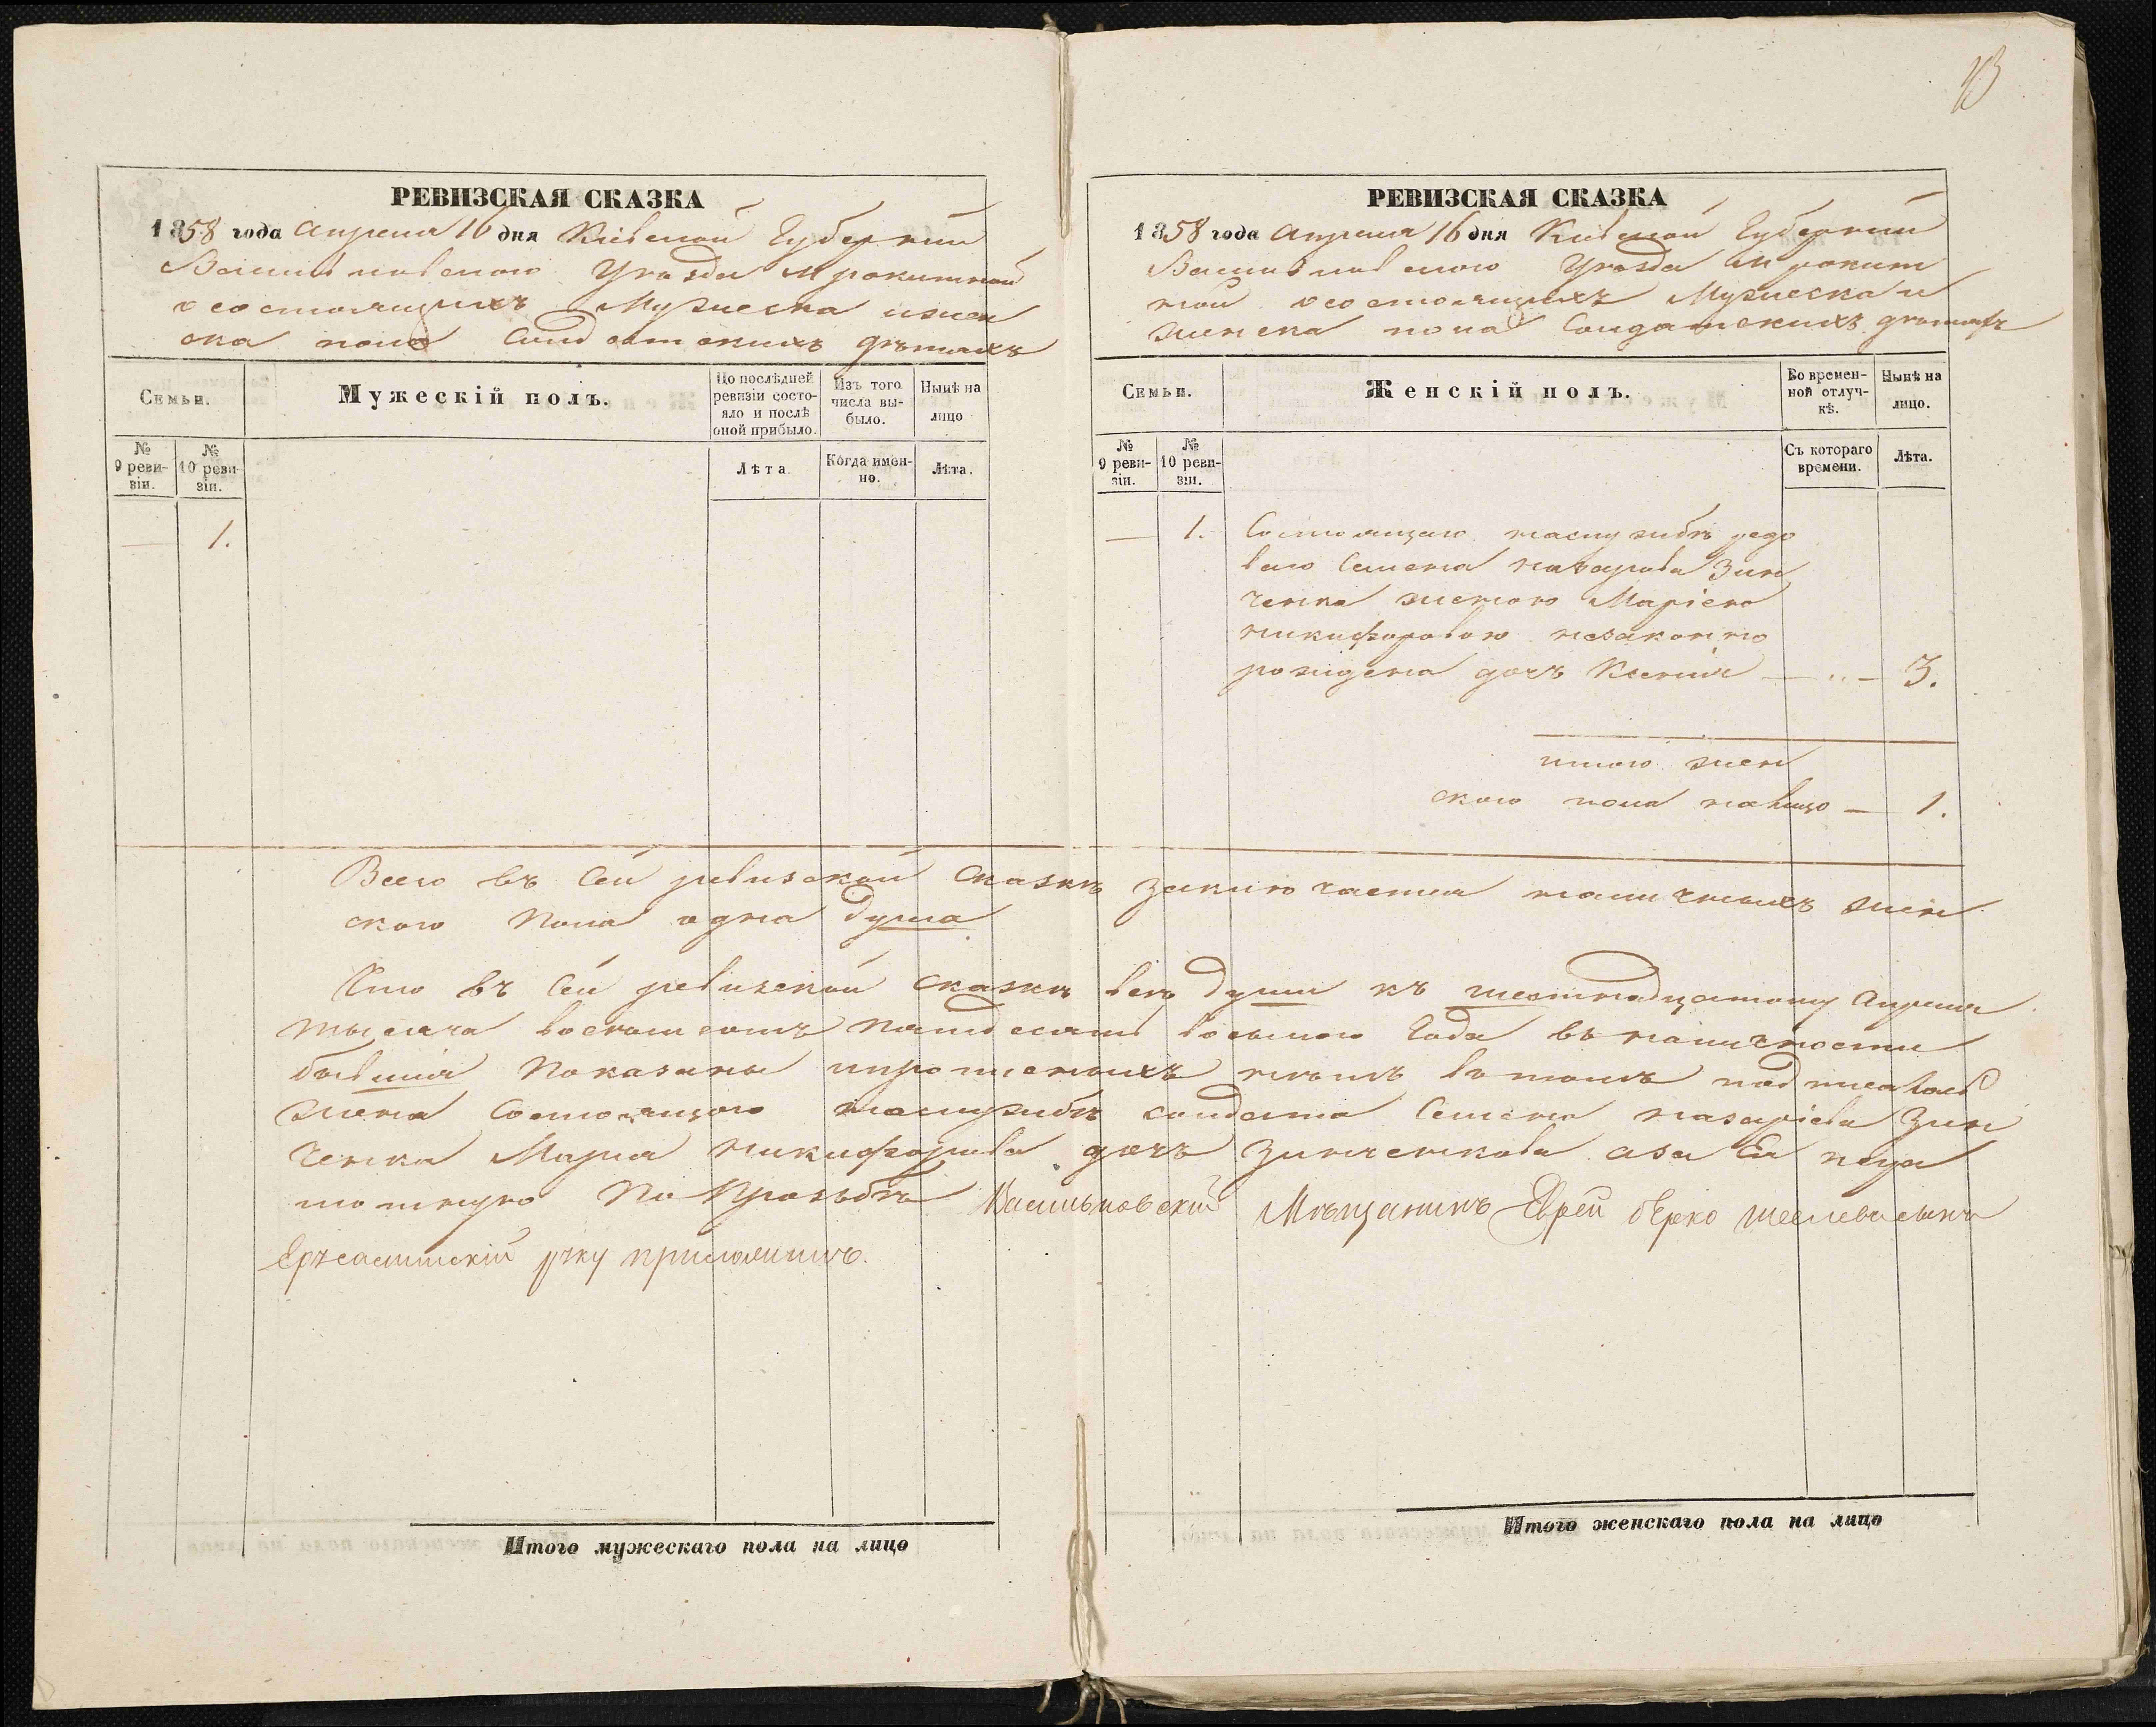 13
РЕВИЗСКАЯ СКАЗКА
1858 года Апреля 16 дня Кіевской Губерніи
Васильковскаго Уѣзда М Рокитной
о состоящихъ Мужеска и жен
ска пола Солдатскихъ дѣтяхъ
Семьи.
Мужескій полъ.
По послѣдней ревизіи состо-
яло и послѣ оной прибыло.
Изъ того числа вы-
было.
Нынѣ на лицо
№ 9 реви-
зіи.
№ 10 реви-
зіи.
Лѣта.
Когда имен-
но.
Лѣта.
— 1.
РЕВИЗСКАЯ СКАЗКА
1858 года Апреля 16 дня Кіевской Губерніи
Васильковскаго Уѣзда М Рокит
ной о состоящихъ Мужеска и
женска пола Солдатскихъ дѣтяхъ
Семьи.
Женскій полъ.
Во времен-
ной отлуч-
кѣ.
Нынѣ на лицо.
№ 9 реви-
зіи.
№ 10 реви-
зіи.
Съ котораго времени.
Лѣта.
— 1. Состоящаго на службѣ редо
ваго Семена Назарова Зин
ченка женою Маріею
Никифоровою незаконно
рождена дочь Ксенія — „ — 3.
итого жен
ского пола налицо — 1.
Всего въ Сей ревизской Сказкѣ заключается наличныхъ жен
ского Пола одна душа
Что въ Сей ревизской сказкѣ всѣ души къ шестнадцатому Апреля
тысяча восемьсотъ пятдесятъ восьмого Года въ наличности
бывшія Показаны и прописныхъ нѣтъ в томъ подписалась
жена Состоящого на службѣ солдата Семена Назаріева Зин
ченка Мария Никифорова дочь Зинченкова а за Ея негра
мотную По Прозьбѣ Васильковский Мѣщанинъ Еврей Берко сынъ
руку приложилъ.
Итого мужескаго пола на лицо
Итого женскаго пола на лицо